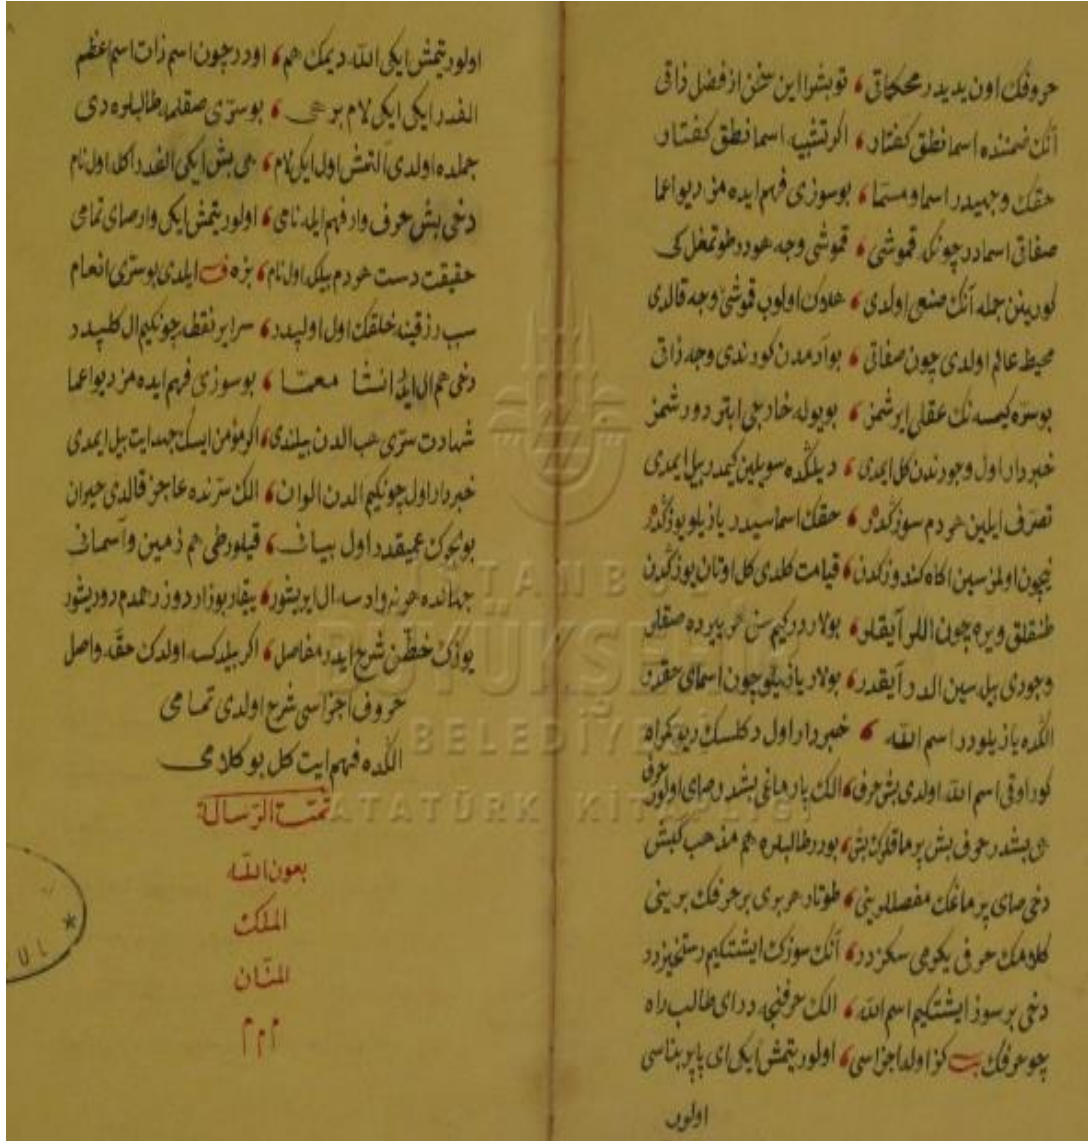 حروفك اون يديدر محكماتی ، تو بشنو اين سخن از فضل ذاتی
آنك ضمننده اسما نطق كفتار ، اسما نطق كفتار
حقك وجهيدر اسما و مسما ، بو سوزی فهم ايده مز ديو اعما
صفاتی اسمادر چونكه قموشی ، قموشی وجه هودر
كورينن جمله آنك صنعی اولدی ، هلاك اولوب قموشی وجه قالدی
محيط عالم اولدی چون صفاتی ، بو آدمدن كورندی وجه ذاتی
بو سره كيمسه نك عقلی ايرشمز ، بو يوله خارجی ابتر دورشمز
خبردار اول وجودندن كل ايمدی ، ديلكده سويلين كيمدر بيل ايمدی
تصرف ايلين هر دم سوزكدر ، حقك اسماسيدر يازيلو يوزكدر
نيچون اولمزسين اكاه كندوزكدن ، قيامت كلدی كل اوتان يوزكدن
طنقلق ويره چون اللر آيقلر ، بولاردر كيم سن هر يرده صقلر
وجودی بيل سين الدر آيقدر ، بولار يازيلو چون اسمای حقدر
الكده يازيلودر اسم الله ، خبردار اول دكلسك ديو كمراه
كور اوقی اسم الله اولدی بش حرف ، الك بارماغی بشدر صای اولور حرف
بشدر حرف بش برماقلرك بش ، بودر طالبلره هم مذهب كيش
دخی صای برماغك مفصللرينی ، طوتار هر بری بر حرفك يرينی
كلامك حرفی يكرمی سكزدر ، آنك سوزك ايشتكيم رستخيزدر
دخی بر سوز ايشتكيم اسم الله ، الك حرفنجه در ای طالب راه
چو حرفك كز اولدا اجزاسی ، اولور يتمش ايكی ای
اولور
اولور يتمش ايكی الله ديمك هم ، اودر چون اسم ذات اسم اعظم
الفدر ايكی ايكی لام بر هی ، بو سری صقلمه طالبلره دی
جملده اولدی التمش اول ايكی لام ، هی بش ايكی الفدر اكله اول نام
دخی بش حرف وار فهم ايله نامی ، اولور يتمش ايكی وار صای تمامی
حقيقت دست هر دم بيلك اول نام ، بزه ف ايلدی بو سری انعام
سبب رزقينه خلقك اول اوليدر ، سراير نقطه چونكيم ال كليددر
دخی هم ال ايله انشا معما ، بو سوزی فهم ايده مز ديو اعما
شهادت سری هب الدن بيلندی ، اكر مؤمن ايسك جهد ايت بيل ايمدی
خبردار اول چونكيم الدن الوان ، الك سرنده عاجز قالدی حيران
عميقدر اول بيانی ، قيلور طی هم زمين و آسمانی
جهانده هر نه وارسه ال ايريشور ، يقار بوزار دوزر هر دم دوريشور
يوزك خطن شرح ايدر مفاصل ، اكر بيلدكسه اولدك حقه واصل
حروف اجزاسی شرح اولدی تمامی
الكده فهم ايت كل بو كلامی
تمت الرسالة
بعون الله
الملك
المنان
م م م
ISTANBUL
BÜYÜKŞEHİR
BELEDİYESİ
ATATÜRK KİTAPLIĞI
UL